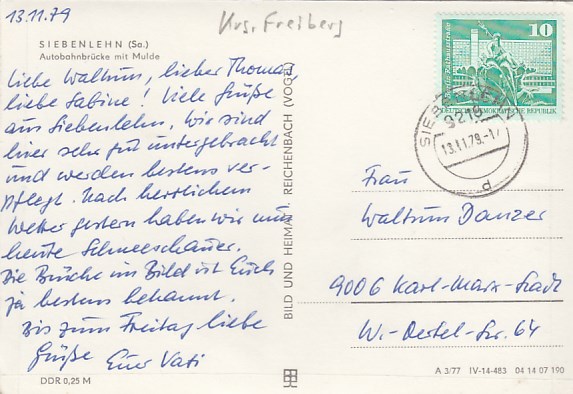 13.11.79
Krs. Freiberg
SIEBENLEHN (Sa.)
Autobahnbrücke mit Mulde
Liebe Waltrun, lieber Thomas,
liebe Sabine! Viele Grüße
aus Siebenlehn. Wir sind
hier sehr gut untergebracht
und werden bestens ver-
pflegt. Nach herrlichem
Wetter gestern haben wir nun
heute Schneeschauer.
Die Brücke im Bild ist Euch
ja bestens bekannt.
Bis zum Freitag liebe
Grüße Euer Vati
DDR 0,25 M
BILD UND HEIMAT REICHENBACH (VOGTL)
10
DEUTSCHE DEMOKRATISCHE REPUBLIK
SIEBENLEHN
9219
13.11.79.-17
d
Frau
Waltrun Danzer
9006 Karl-Marx-Stadt
W.-Oertel-Str. 64
A 3/77 IV-14-483 04 14 07 190